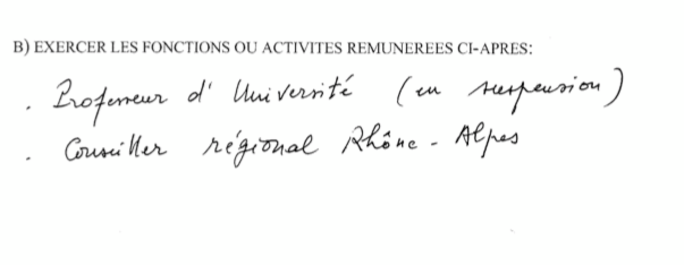 B) EXERCER LES FONCTIONS OU ACTIVITES REMUNEREES CI-APRES:
. Professeur d'Université (en suspension)
. Conseiller régional Rhône-Alpes